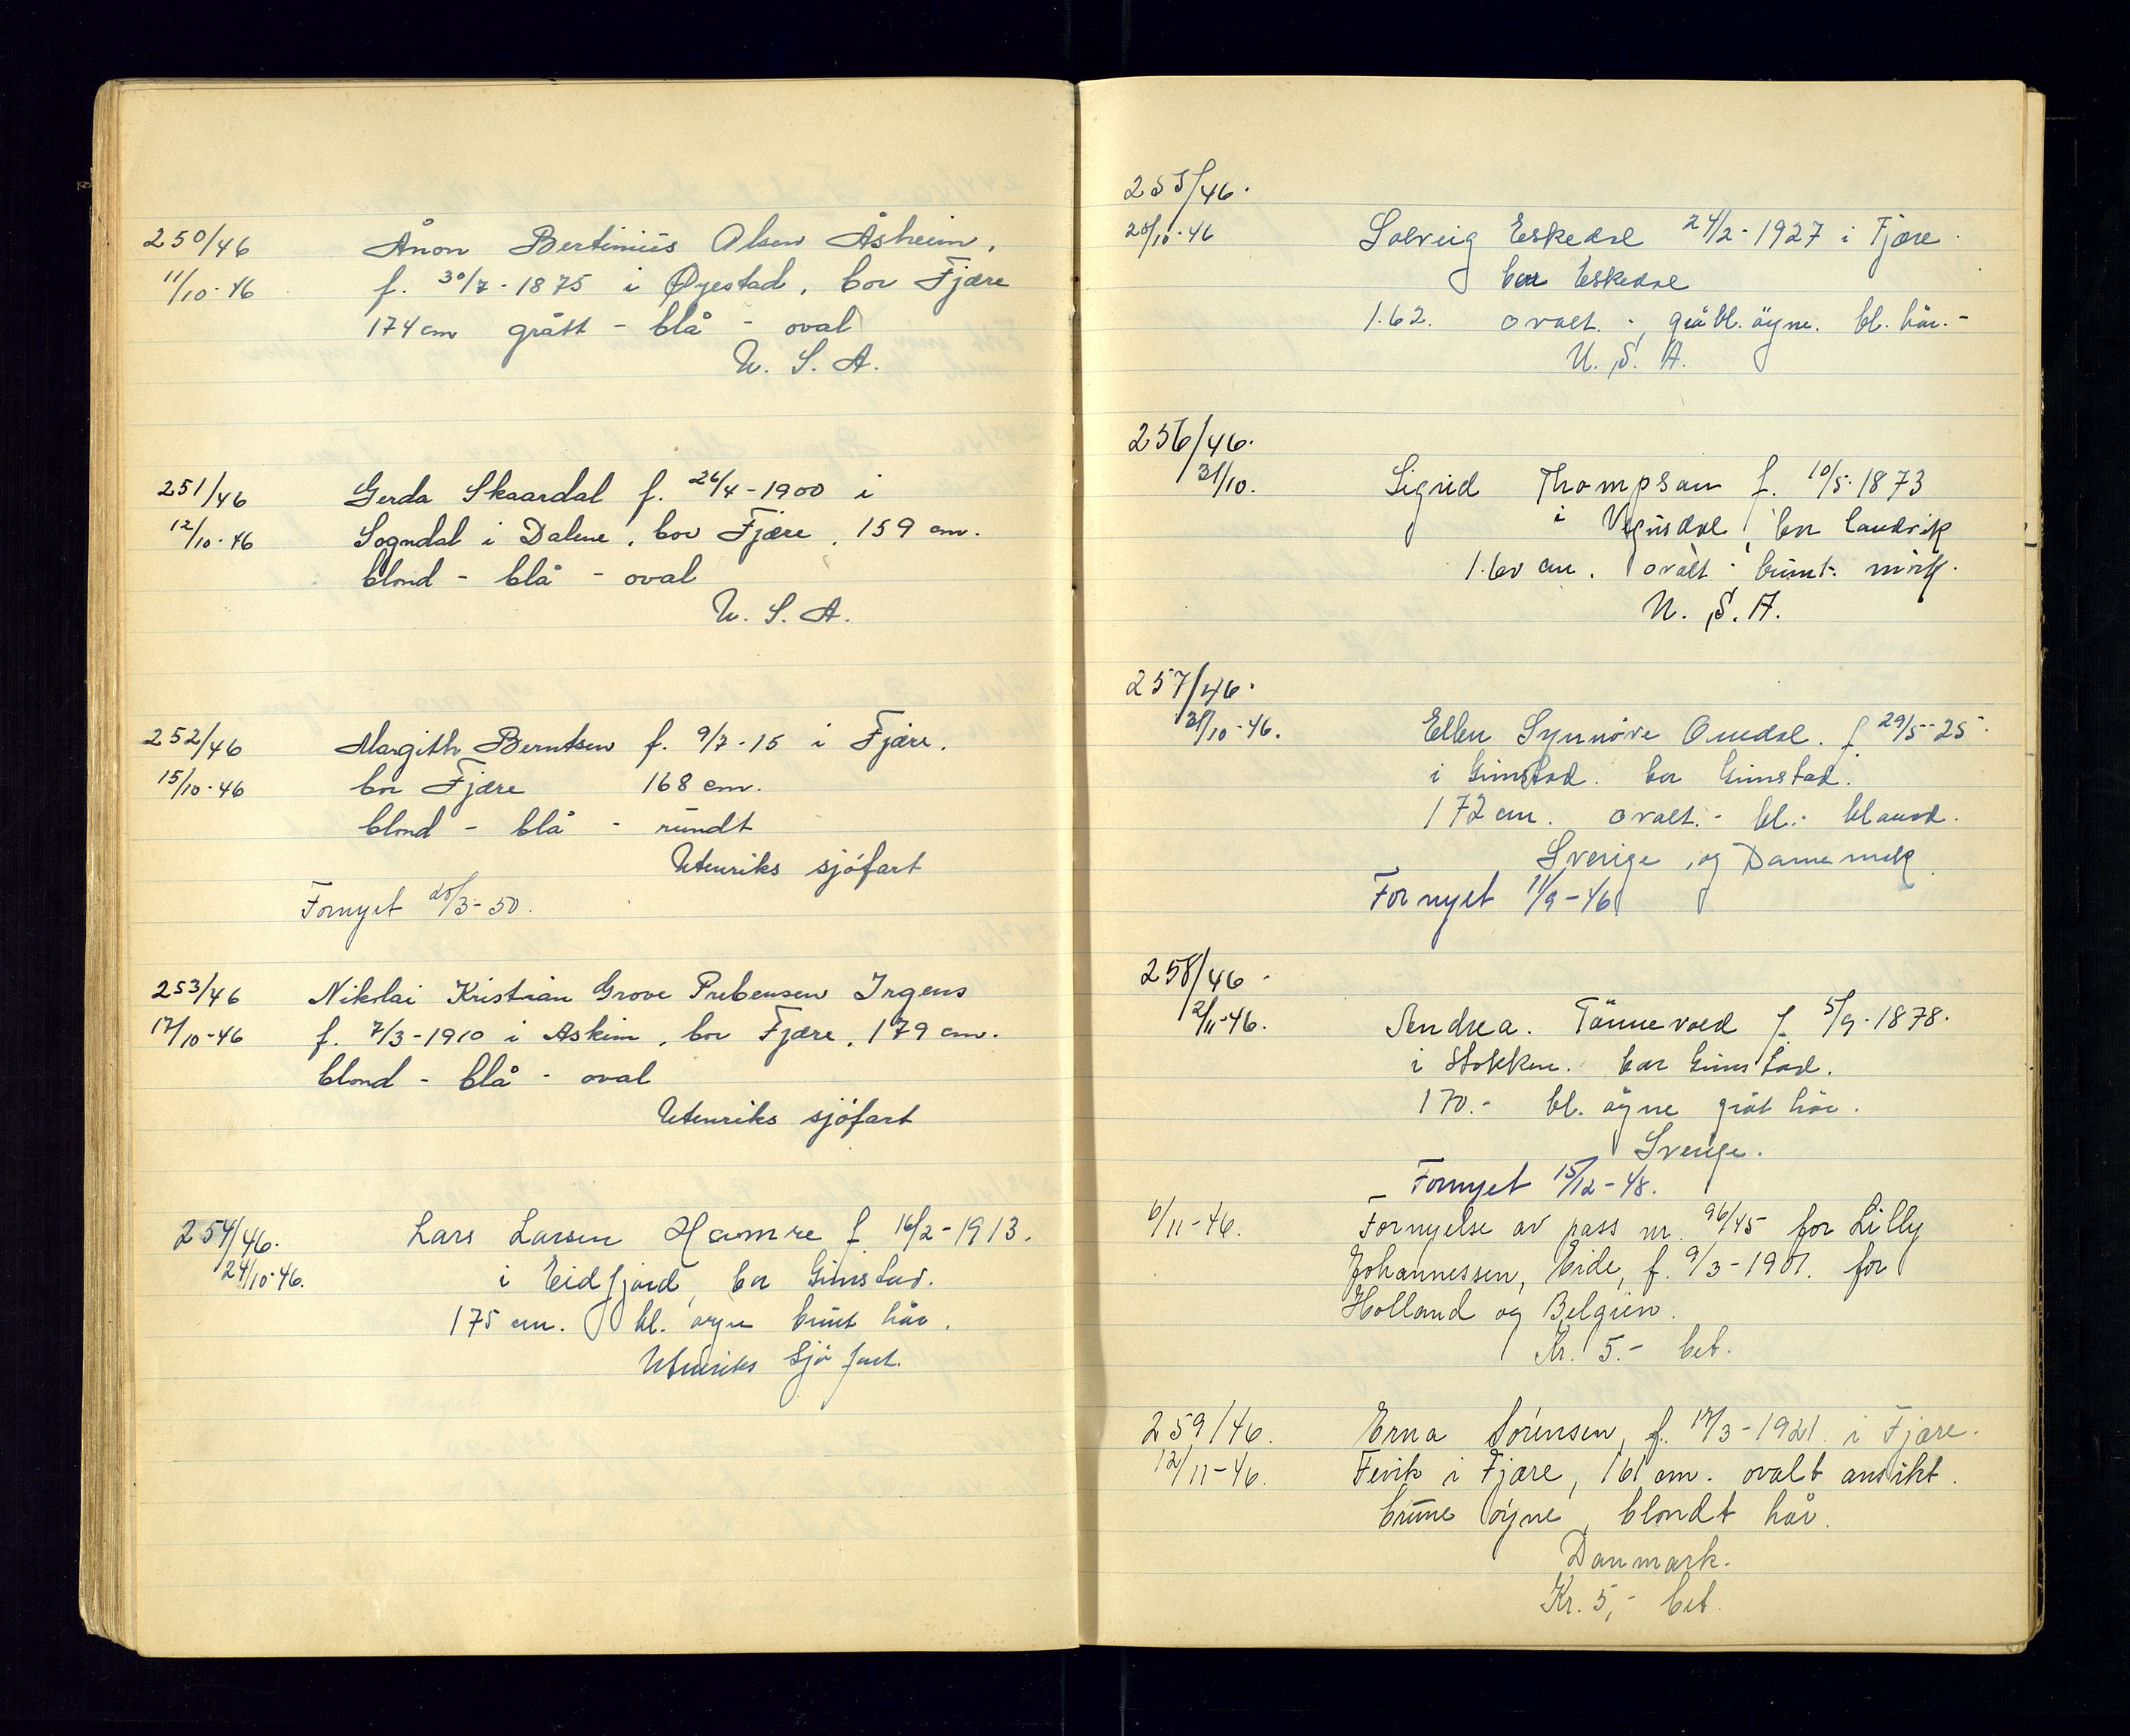 250/46 Ånon Bertinius Olsen Åsheim,
11/10-46 f. 30/7-1875 i Øyestad, bor Fjære
174 cm grått - blå - oval
U. S. A.
251/46 Gerda Skaardal f. 26/4-1900 i
12/10-46 Sogndal i Dalene, bor Fjære, 159 cm.
blond - blå - oval
U. S. A.
252/46 Margith Berntsen f. 9/7-15 i Fjære,
15/10-46 bor Fjære 168 cm.
blond - blå - rundt
Utenriks sjøfart
Fornyet 28/3-50.
253/46 Nikolai Kristian Grove Prebensen Irgens
17/10-46 f. 7/3-1910 i Askim, bor Fjære, 179 cm.
blond - blå - oval
Utenriks sjøfart
254/46. Lars Larsen Hamre f 16/2-1913.
24/10-46. i Eidfjord, bor Grimstad.
175 cm. bl. øyne brunt hår.
Utenriks Sjøfart.
255/46.
28/10-46 Solveig Eskedal 24/2-1927 i Fjære.
bor Eskedal
1.62. ovalt. - gråbl. øyne. bl. hår. -
U. S. A.
256/46.
31/10. Sigrid Thompson f. 10/5-1873
i Vegusdal, bor Landvik
1.60 cm. ovalt - brunt - mörk.
U. S. A.
257/46.
31/10-46. Ellen Synnøve Omdal. f 29/5-25
i Grimstad. bor Grimstad.
172 cm. ovalt. - bl. - blond.
Sverige, og Danemark
Fornyet 11/9-46
258/46.
2/11-46. Andrea. Tönnevold f 5/9-1878.
i Stokken. bor Grimstad.
170. - bl. øyne gråt hår.
Sverige.
Fornyet 15/12-48.
6/11-46. Fornyelse av pass nr. 96/45 for Lilly
Johannessen, Eide, f. 9/3-1901. for
Holland og Belgien.
Kr. 5.- bet.
259/46. Erna Sørensen, f. 17/3-1921. i Fjære.
12/11-46. Fevik i Fjære, 161 cm. ovalt ansikt.
brune øyne, blondt hår.
Danmark.
Kr. 5,- bet.